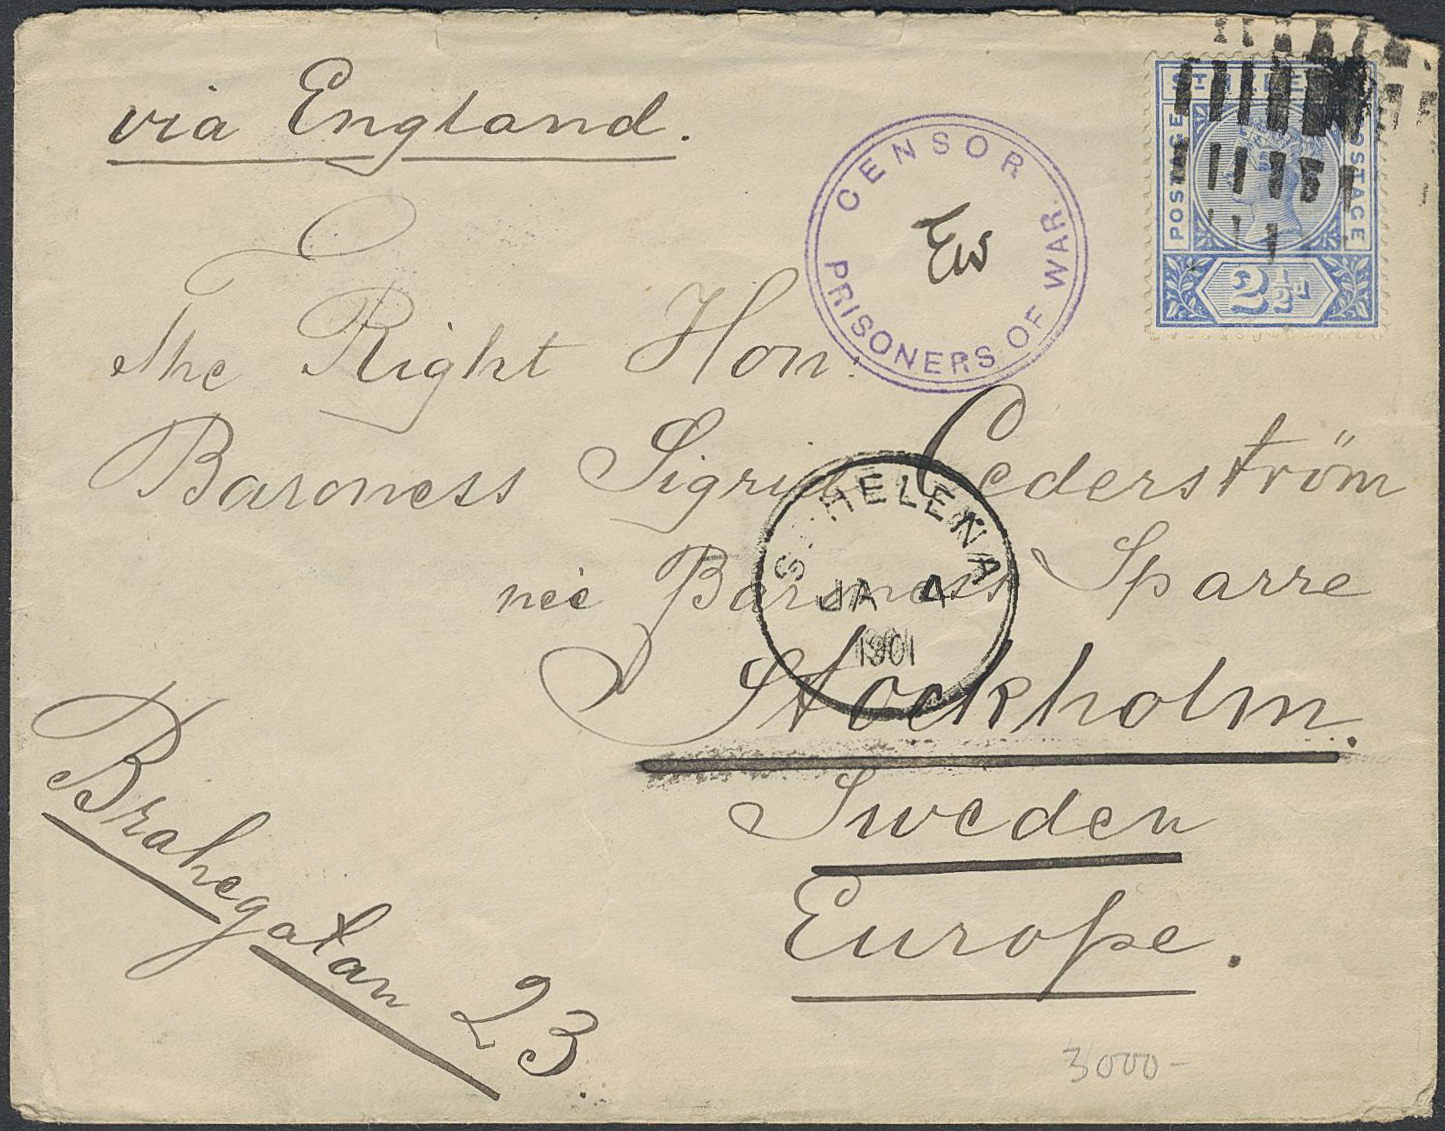 via England.
CENSOR
PRISONERS OF WAR.
Ew
POSTAGE
POSTAGE
2½d
The Right Hon:
Baroness Sigrid Cederström
née Baroness Sparre
ST HELENA
JA 4
1901
Stockholm.
Sweden
Europe.
Brahegatan 23.
3000-